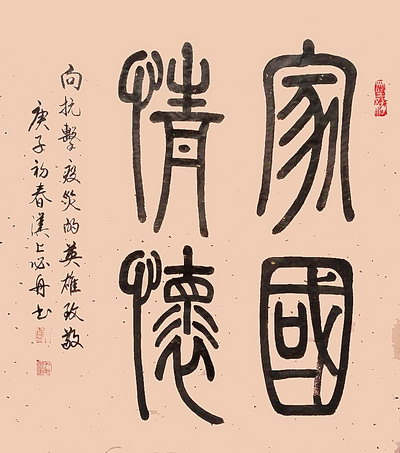 家國
情懷
向抗擊疫災的英雄致敬
庚子初春漢上必舟书